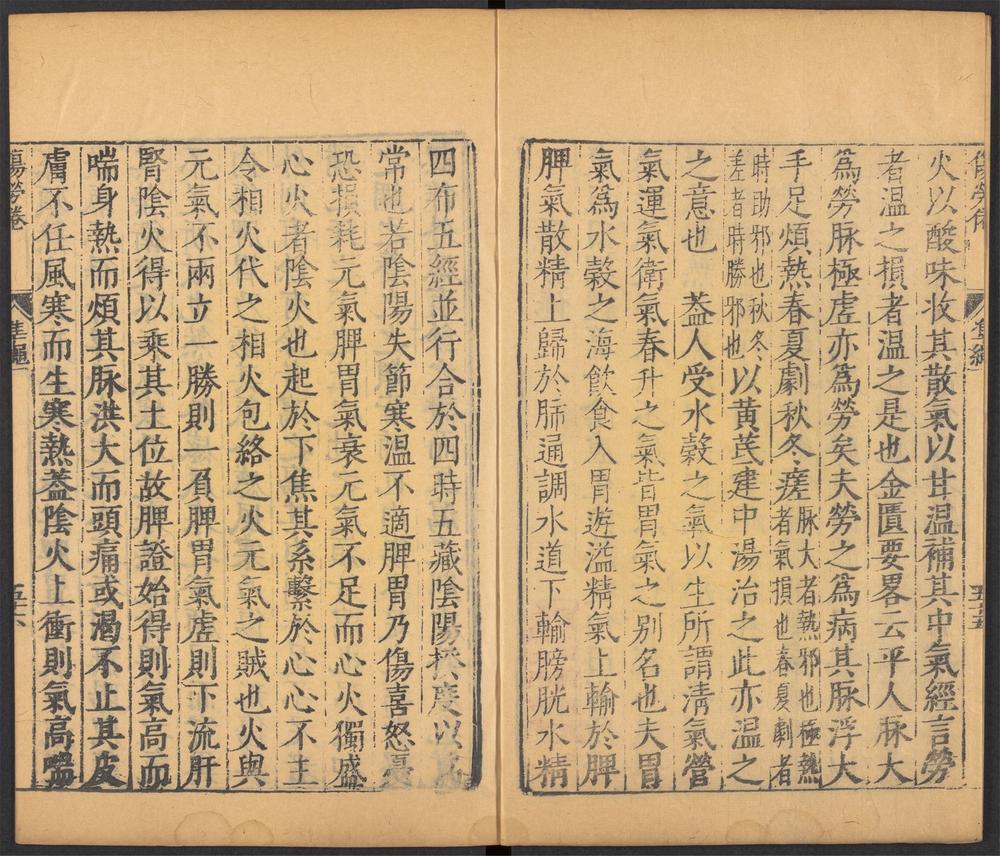 火以酸味收其散氣以甘温補其中氣經言勞
者温之損者温之是也金匱要畧云平人脉大
為勞脉極虛亦為勞矣夫勞之為病其脉浮大
手足煩熱春夏劇秋冬瘥脉大者熱邪也極虛者氣損也春夏劇者
時助邪也秋冬差者時勝邪也以黄芪建中湯治之此亦温之
之意也　葢人受水穀之氣以生所謂淸氣營
氣運氣衛氣春升之氣皆胃氣之别名也夫胃
氣爲水穀之海飲食入胃遊溢精氣上輸於脾
脾氣散精上歸於肺通調水道下輸膀胱水精
五十五
四布五經並行合於四時五藏陰陽揆度以爲
常也若陰陽失節寒温不適脾胃乃傷喜怒憂
恐損耗元氣脾胃氣衰元氣不足而心火獨盛
心火者陰火也起於下焦其系繫於心心不主
令相火代之相火包絡之火元氣之賊也火與
元氣不兩立一勝則一負脾胃氣虛則下流肝
腎陰火得以乘其土位故脾證始得則氣高而
喘身熱而煩其脉洪大而頭痛或渴不止其皮
膚不任風寒而生寒熱葢陰火上衝則氣高喘
傷勞卷
準繩
五十六